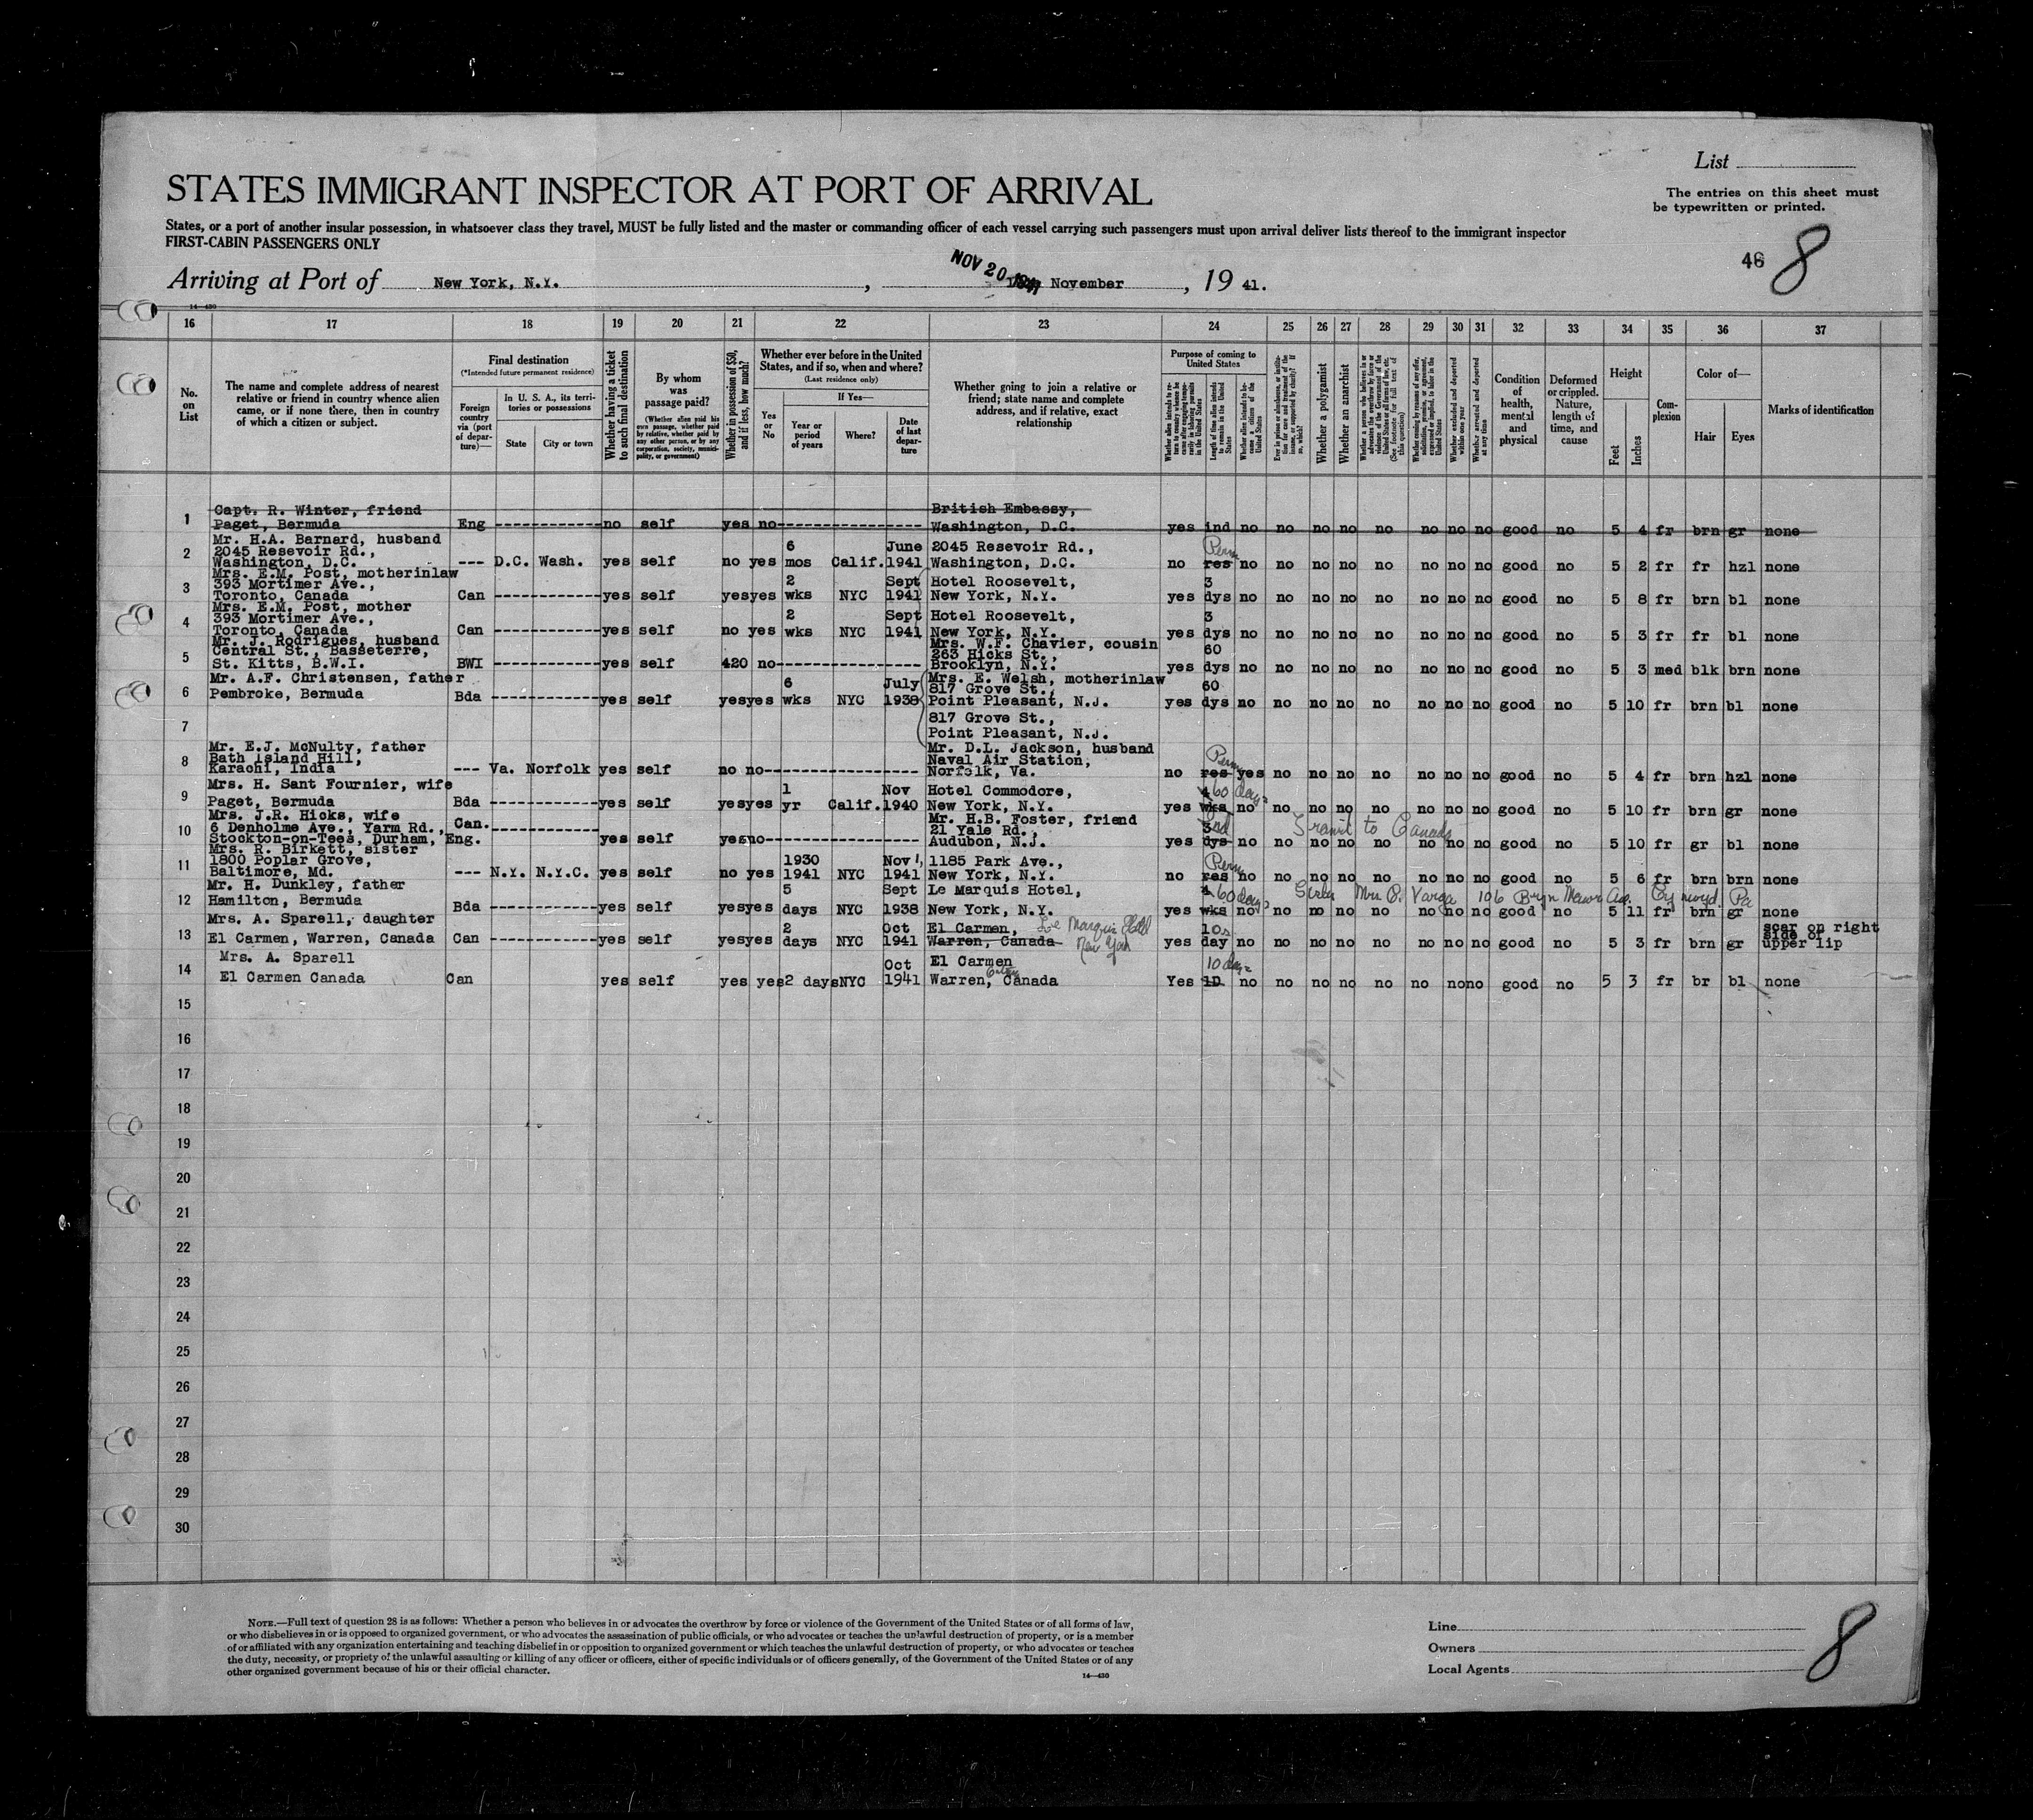 List
STATES IMMIGRANT INSPECTOR AT PORT OF ARRIVAL
The entries on this sheet must
be typewritten or printed.
States, or a port of another insular possession, in whatsoever class they travel, MUST be fully listed and the master or commanding officer of each vessel carrying such passengers must upon arrival deliver lists thereof to the immigrant inspector
FIRST-CABIN PASSENGERS ONLY
46 8
Arriving at Port of New York, N.Y., NOV 20 1941 November, 19 41.
14—430
16 17 18 19 20 21 22 23 24 25 26 27 28 29 30 31 32 33 34 35 36 37
No. on List
The name and complete address of nearest
relative or friend in country whence alien
came, or if none there, then in country
of which a citizen or subject.
Final destination
(*Intended future permanent residence)
Foreign country via (port of departure)—
In U. S. A., its territories or possessions
State City or town
Whether having a ticket to such final destination
By whom was passage paid?
(Whether alien paid his own passage, whether paid by relative, whether paid by any other person, or by any corporation, society, municipality, or government)
Whether in possession of $50, and if less, how much?
Whether ever before in the United States, and if so, when and where?
(Last residence only)
Yes or No
If Yes—
Year or period of years
Where?
Date of last departure
Whether going to join a relative or
friend; state name and complete
address, and if relative, exact
relationship
Purpose of coming to United States
Length of time alien intends to remain in the United States
Whether alien intends to become a citizen of the United States
Whether a polygamist
Whether an anarchist
Whether excluded and deported within one year
Whether arrested and deported at any time
Condition of health, mental and physical
Deformed or crippled. Nature, length of time, and cause
Height
Feet Inches
Complexion
Color of—
Hair Eyes
Marks of identification
1 Capt. R. Winter, friend British Embassy,
Paget, Bermuda Eng ------------ no self yes no---------------- Washington, D.C. yes ind no no no no no no no no good no 5 4 fr brn gr none
2 Mr. H.A. Barnard, husband 6 June 2045 Resevoir Rd., Perm
2045 Resevoir Rd.,
Washington, D.C. --- D.C. Wash. yes self no yes mos Calif. 1941 Washington, D.C. no res no no no no no no no no good no 5 2 fr fr hzl none
3 Mrs. E.M. Post, motherinlaw 2 Sept Hotel Roosevelt, 3
393 Mortimer Ave.,
Toronto, Canada Can ------------ yes self yes yes wks NYC 1941 New York, N.Y. yes dys no no no no no no no no good no 5 8 fr brn bl none
4 Mrs. E.M. Post, mother 2 Sept Hotel Roosevelt, 3
393 Mortimer Ave.,
Toronto, Canada Can ------------ yes self no yes wks NYC 1941 New York, N.Y. yes dys no no no no no no no no good no 5 3 fr fr bl none
5 Mr. J. Rodrigues, husband Mrs. W.F. Chavier, cousin
Central St., Basseterre, 263 Hicks St., 60
St. Kitts, B.W.I. BWI ------------ yes self 420 no---------------- Brooklyn, N.Y. yes dys no no no no no no no no good no 5 3 med blk brn none
6 Mr. A.F. Christensen, father 6 July Mrs. E. Welsh, motherinlaw
817 Grove St., 60
Pembroke, Bermuda Bda ------------ yes self yes yes wks NYC 1938 Point Pleasant, N.J. yes dys no no no no no no no no good no 5 10 fr brn bl none
7 817 Grove St.,
Point Pleasant, N.J.
8 Mr. E.J. McNulty, father Mr. D.L. Jackson, husband
Bath Island Hill, Naval Air Station, Perm
Karachi, India --- Va. Norfolk yes self no no---------------- Norfolk, Va. no res yes no no no no no no no good no 5 4 fr brn hzl none
9 Mrs. H. Sant Fournier, wife 1 Nov Hotel Commodore, 4 60 days
Paget, Bermuda Bda ------------ yes self yes yes yr Calif. 1940 New York, N.Y. yes wks no no no no no no no no good no 5 10 fr brn gr none
10 Mrs. J.R. Hicks, wife Can. Mr. H.B. Foster, friend
6 Denholme Ave., Yarm Rd., ------------ 21 Yale Rd., 3 Transit to Canada
Stockton-on-Tees, Durham, Eng. yes self yes no---------------- Audubon, N.J. yes dys no no no no no no no no good no 5 10 fr gr bl none
11 Mrs. R. Birkett, sister
1800 Poplar Grove, 1930 Nov 1, 1185 Park Ave., Perm
Baltimore, Md. --- N.Y. N.Y.C. yes self no yes 1941 NYC 1941 New York, N.Y. no res no no no no no no no no good no 5 6 fr brn brn none
12 Mr. H. Dunkley, father 5 Sept Le Marquis Hotel, 4 60 days Sister Mrs B. Varga 106 Bryn Mawr Ave. Pa
Hamilton, Bermuda Bda ------------ yes self yes yes days NYC 1938 New York, N.Y. yes wks no no no no no no no no good no 5 11 fr brn gr none
13 Mrs. A. Sparell, daughter 2 Oct El Carmen, Le Marquis Hotel 10 scar on right
side of
El Carmen, Warren, Canada Can ------------ yes self yes yes days NYC 1941 Warren, Canada New York yes day no no no no no no no no good no 5 3 fr brn gr upper lip
14 Mrs. A. Sparell Oct El Carmen 10 days
El Carmen Canada Can yes self yes yes 2 days NYC 1941 Warren, Canada Yes 10 no no no no no no no no good no 5 3 fr br bl none
15
16
17
18
19
20
21
22
23
24
25
26
27
28
29
30
NOTE.—Full text of question 28 is as follows: Whether a person who believes in or advocates the overthrow by force or violence of the Government of the United States or of all forms of law,
or who disbelieves in or is opposed to organized government, or who advocates the assassination of public officials, or who advocates or teaches the unlawful destruction of property, or is a member
of or affiliated with any organization entertaining and teaching disbelief in or opposition to organized government or which teaches the unlawful destruction of property, or who advocates or teaches
the duty, necessity, or propriety of the unlawful assaulting or killing of any officer or officers, either of specific individuals or of officers generally, of the Government of the United States or of any
other organized government because of his or their official character.
14—430
Line
Owners
Local Agents
8